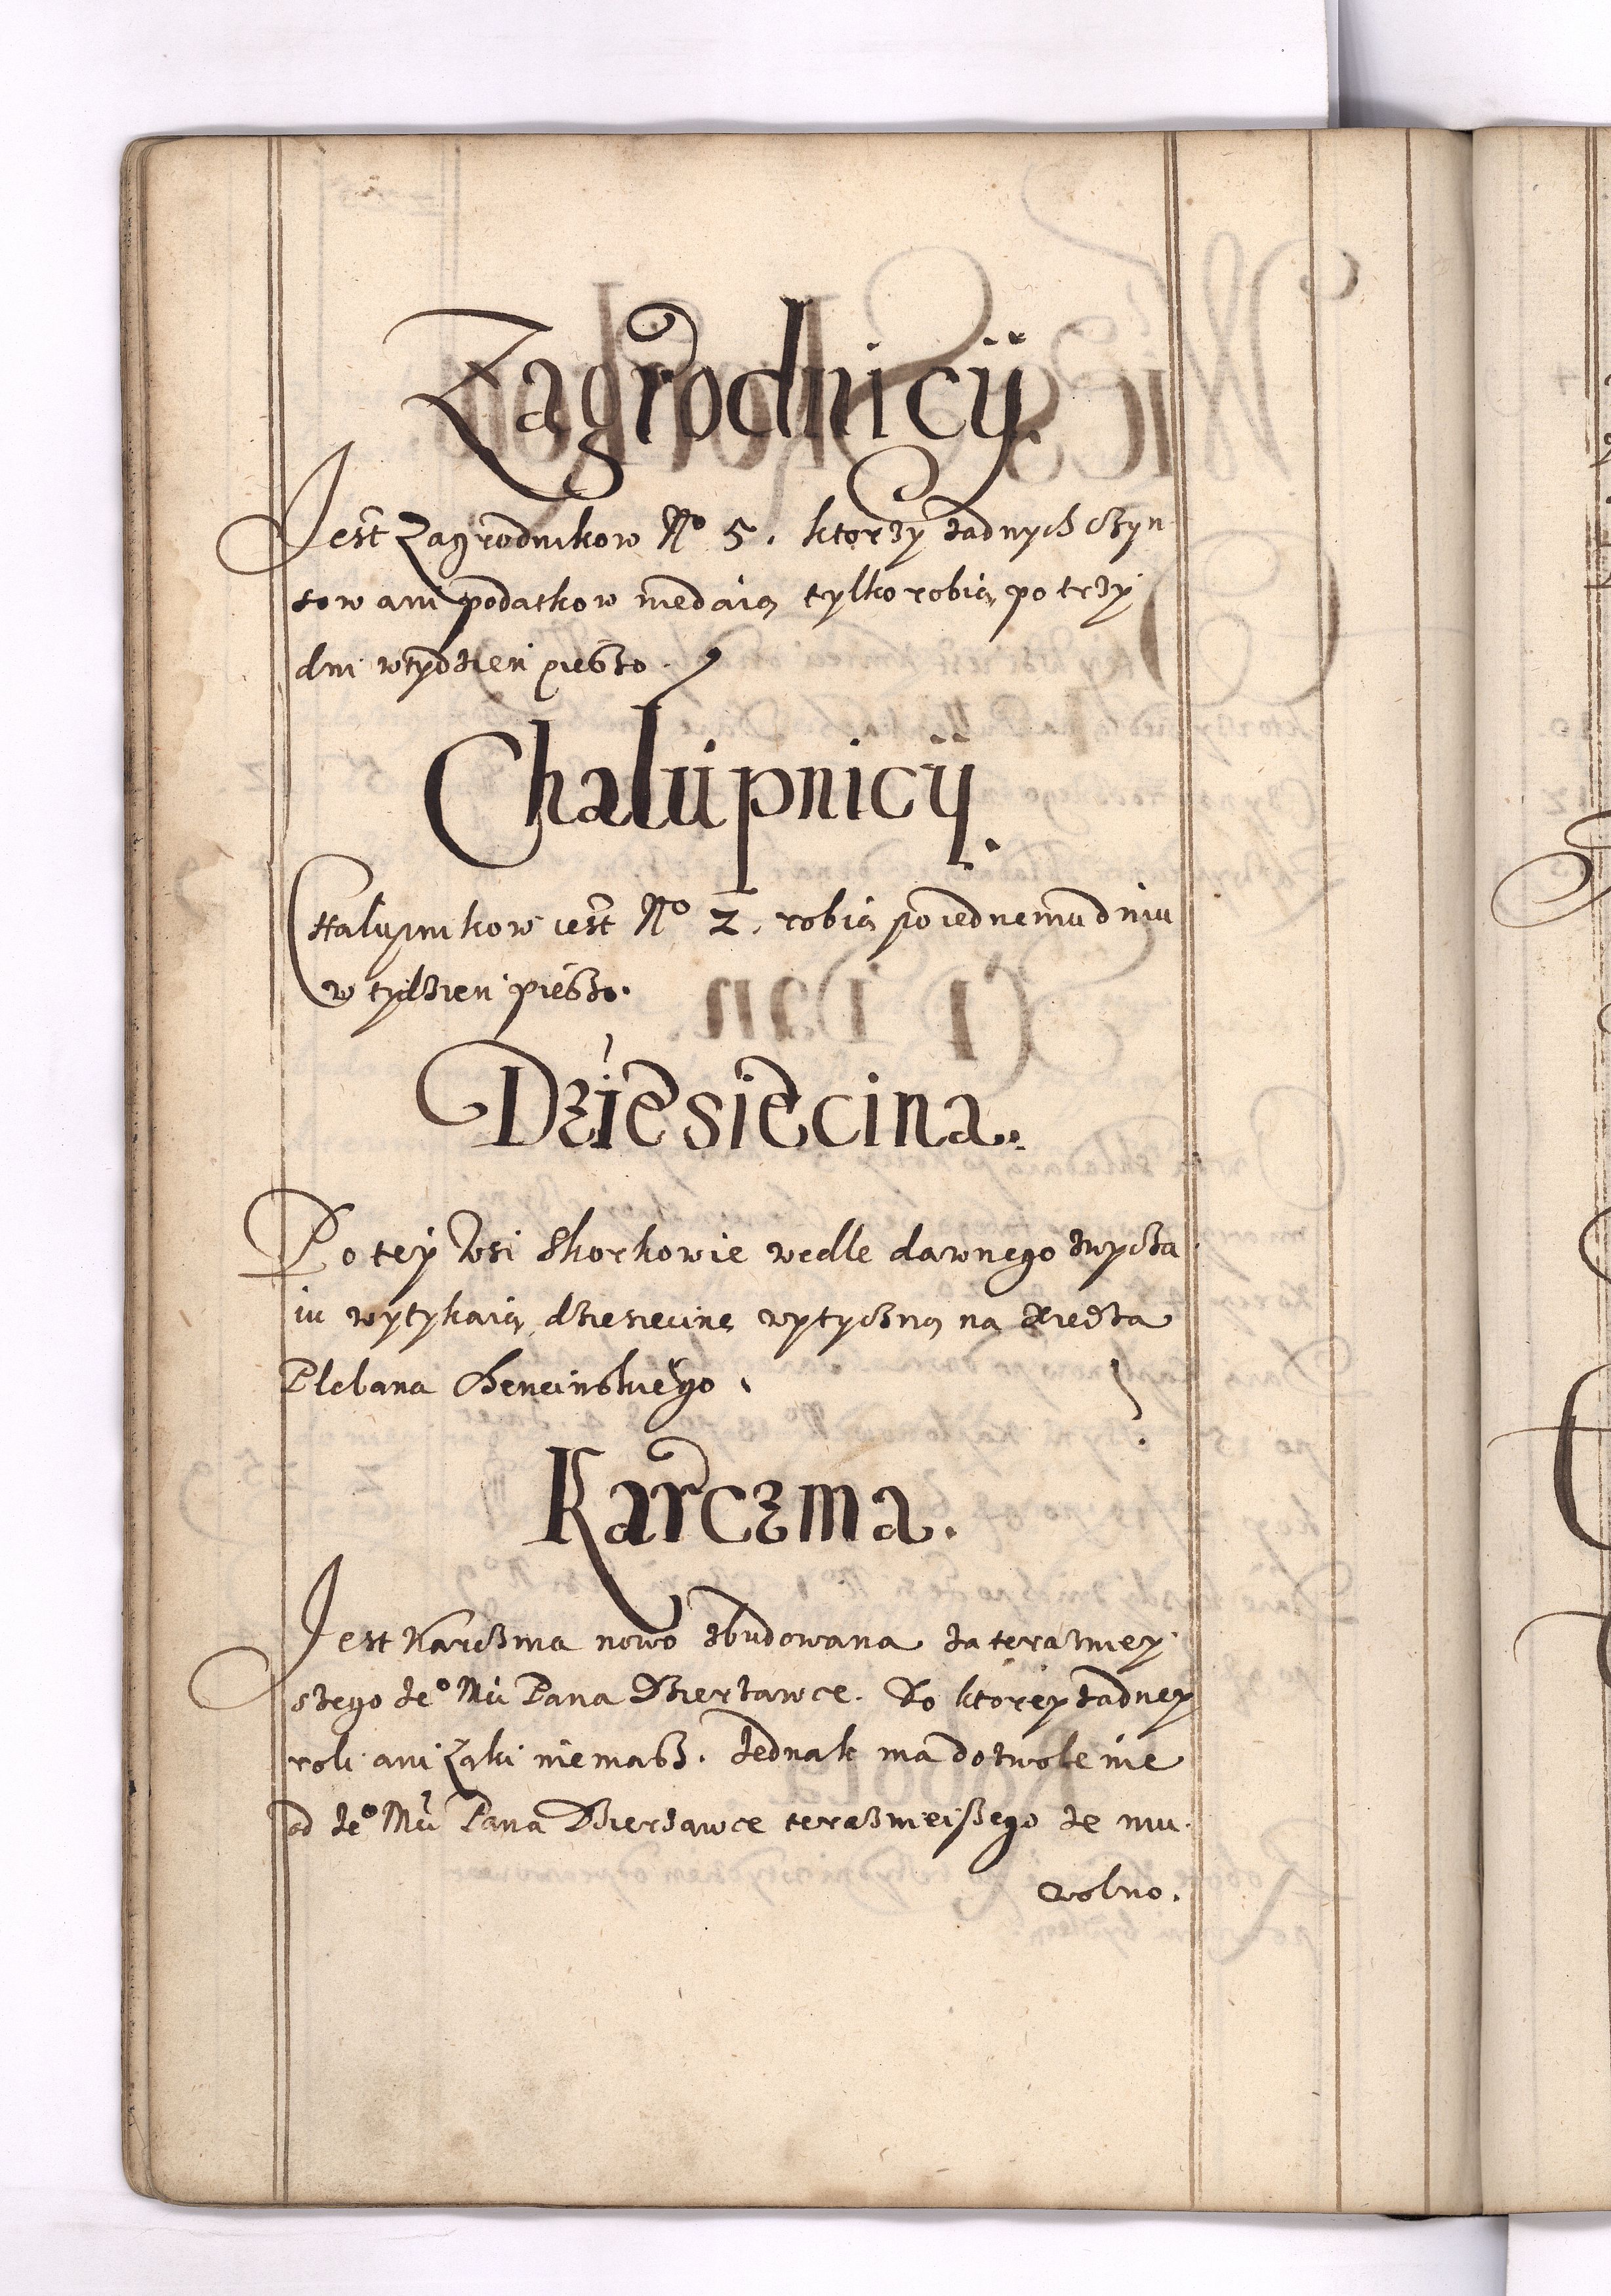 Zagrodnicÿ.
Jest Zagrodnikow No 5. ktorzy żadnych czyn
sow ani podatkow niedaią tylko robią po trzy
dni w tydzień pieszo.
Chalupnicÿ.
Chalupnikow iest No 2. robią po iednemu dniu
w tydzien pieszo.
Dziesiecina.
Po tey Wsi Skorkowie wedle dawnego zwycza
iu wytykaią dziesiecine wytyczną na Xiedza
Plebana Chencinskiego.
Karczma.
Jest Karczma nowo zbudowana za terazniey
szego Jeo Mci Pana Dzierzawce. Do ktorey zadney
roli ani Łąki niemasz. Jednak ma dozwolenie
od Jeo Mci Pana Dzierzawce terazneißego ze mu
wolno.